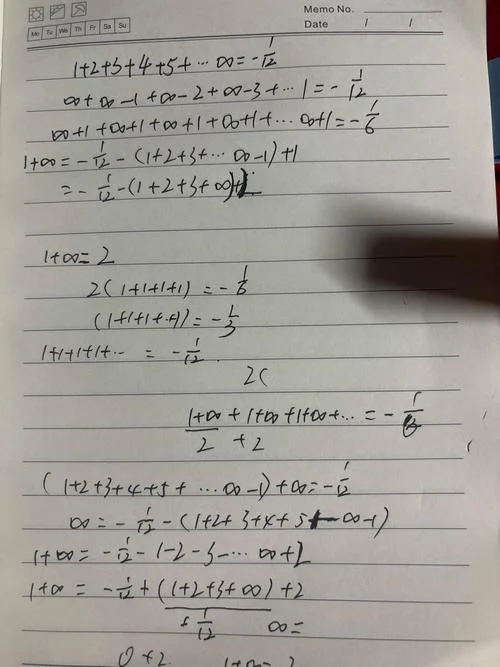 Memo No.
Mo Tu We Th Fr Sa Su
Date / /
1+2+3+4+5+ ... ∞ = -1/12
∞+∞-1+∞-2+∞-3+ ... 1 = -1/12
∞+1+∞+1+∞+1+∞+1+ ... ∞+1 = -1/6
1+∞ = -1/12 -(1+2+3+ ... ∞-1)+1
= -1/12 -(1+2+3+∞)
1+∞ = 2
2(1+1+1+1) = -1/6
(1+1+1+..+1) = -1/3
1+1+1+1+... = -1/12
2(
1+∞ + 1+∞+1+∞+... = -1/6
2 +2
(1+2+3+4+5+ ... ∞-1)+∞ = -1/12
∞ = -1/12 -(1+2+3+4+5 -∞-1)
1+∞ = -1/12 -1-2-3- ... ∞+2
1+∞ = -1/12 +(1+2+3+∞)+2
+1/12 ∞=
0+2 1+∞=2